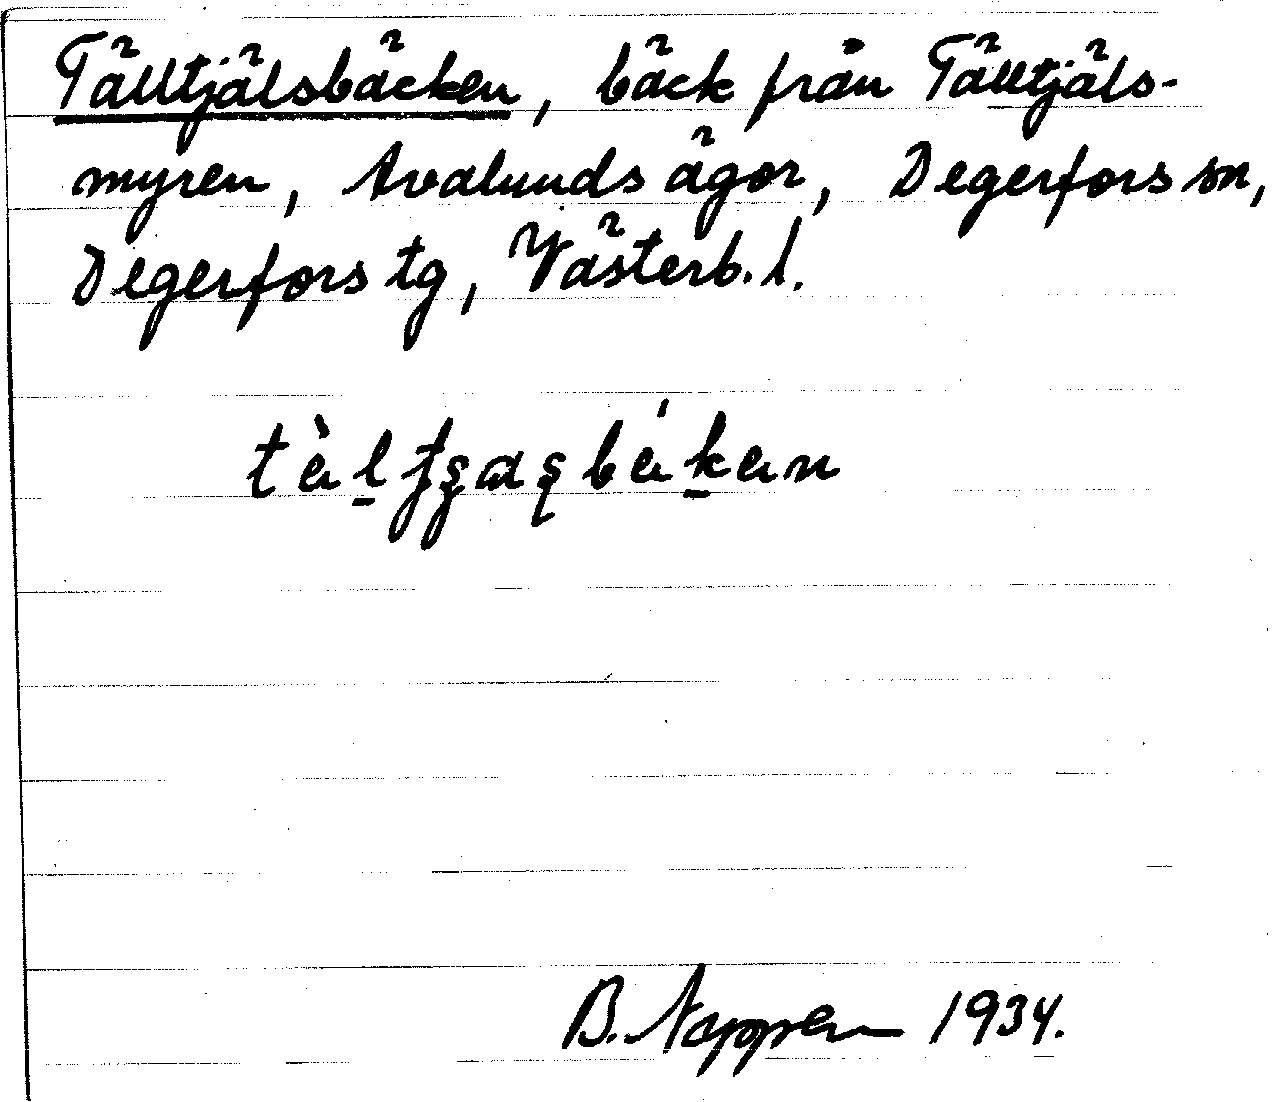 Tälltjälsbäcken, bäck från Tälltjäls-
myren, Avalunds ägor, Degerfors sn,
Degerfors tg, Västerb. l.
B. 1934.